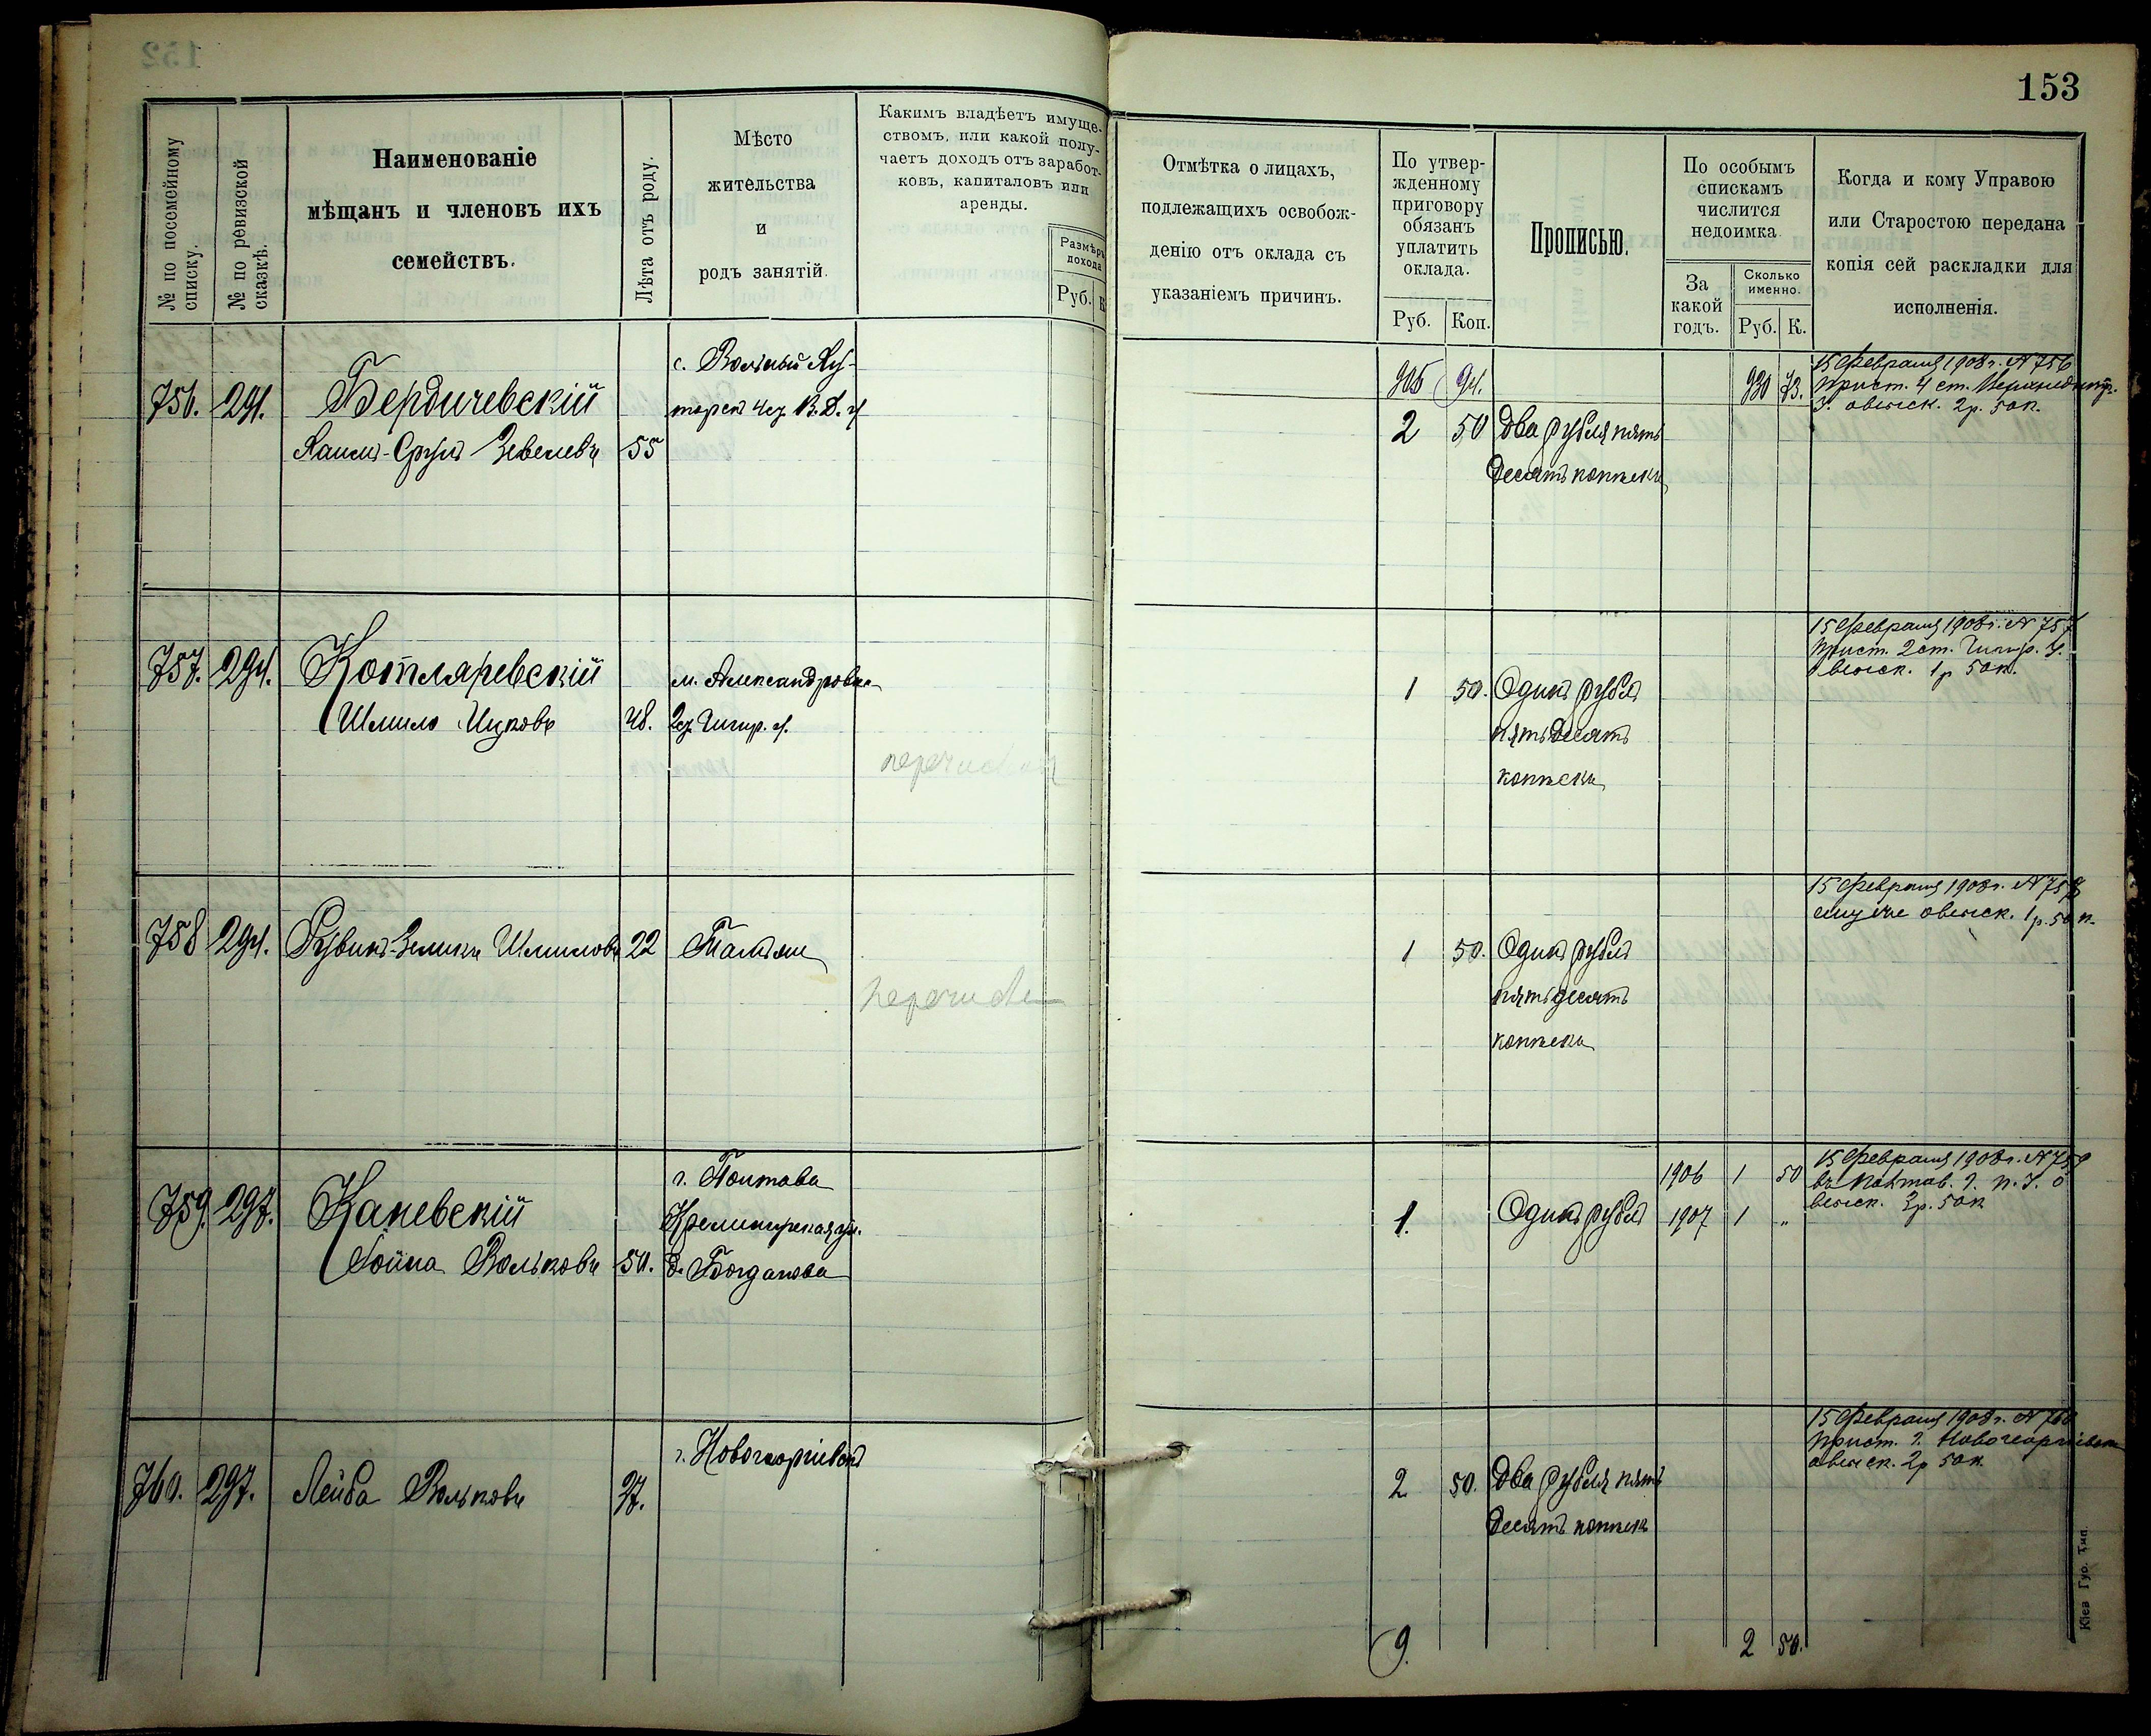 153
№ по посемейному списку.
№ по ревизской сказкѣ.
Наименованіе
мѣщанъ и членовъ ихъ
семействъ.
Лѣта отъ роду.
Мѣсто
жительства
и
родъ занятій.
Какимъ владѣетъ имуще-
ствомъ, или какой полу-
чаетъ доходъ отъ заработ-
ковъ, капиталовъ или
аренды.
Размѣръ
дохода
Руб. К
Отмѣтка о лицахъ,
подлежащихъ освобож-
денію отъ оклада съ
указаніемъ причинъ.
По утвер-
жденному
приговору
обязанъ
уплатить
оклада.
Руб. Коп.
Прописью.
По особымъ
спискамъ
числится
недоимка
За
какой
годъ.
Сколько
именно.
Руб. К.
Когда и кому Управою
или Старостою передана
копія сей раскладки для
исполненія.
756. 291. Бердичевскій
Хаимъ-Сруль Зевелевъ 55
с. Вольный Ху-
торъ
2 50 Два рубля пять
десятъ копѣекъ
930 73.
15 Февраля 1908 г. № 756
Прист. 4 ст. Верхнеднѣпр.
У. о взыск. 2 р. 50 к.
757. 294. Котляревскій
Шмило Ицковъ 48.
м. Александровка
Чигир. у.
перечислен
1 50. Одинъ рубль
пятьдесятъ
копѣекъ
15 Февраля 1908 г. № 757
Прист. 2 ст. Чигир. У.
о взыск. 1 р 50 к.
758 294. Рувинъ-Зеликъ Шмиловъ 22 Тамъ же
перечислен
1 50. Одинъ рубль
пятьдесятъ
копѣекъ
15 Февраля 1908 г. № 758
ему же о взыск. 1 р. 50 к.
759. 297. Каневскій
Іойна Вольковъ 50.
г. Полтава
Кременчугская ул.
д. Богданова
1. Одинъ рубль
1906 1 50
1907 1 "
15 Февраля 1908 г. № 759
въ Полтав. Г. П. У. о
взыск. 3 р. 50 к
760. 297. Лейба Вольковъ 27.
г. Новогеоргіевскъ
2 50. Два рубля пять
десятъ копѣекъ
15 Февраля 1908 г. № 760
Прист. г. Новогеоргіевска
о взыск. 2 р 50 к
9. 2 50.
Кіев Губ. Тип.